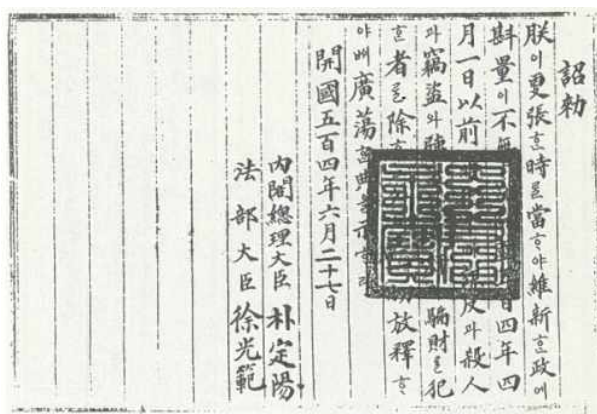 詔勅
朕이更張ᄒᆞᆫ時ᄅᆞᆯ當ᄒᆞ야維新ᄒᆞᆫ政에
斟量이不無 百四年四
月一日以前 과殺人
과竊盜와 騙財ᄅᆞᆯ犯
ᄒᆞᆫ者ᄅᆞᆯ除 切放釋ᄒᆞ
야ᄡᅥ廣蕩
開國五百四年六月二十七日
內閣總理大臣 朴定陽
法部大臣 徐光範